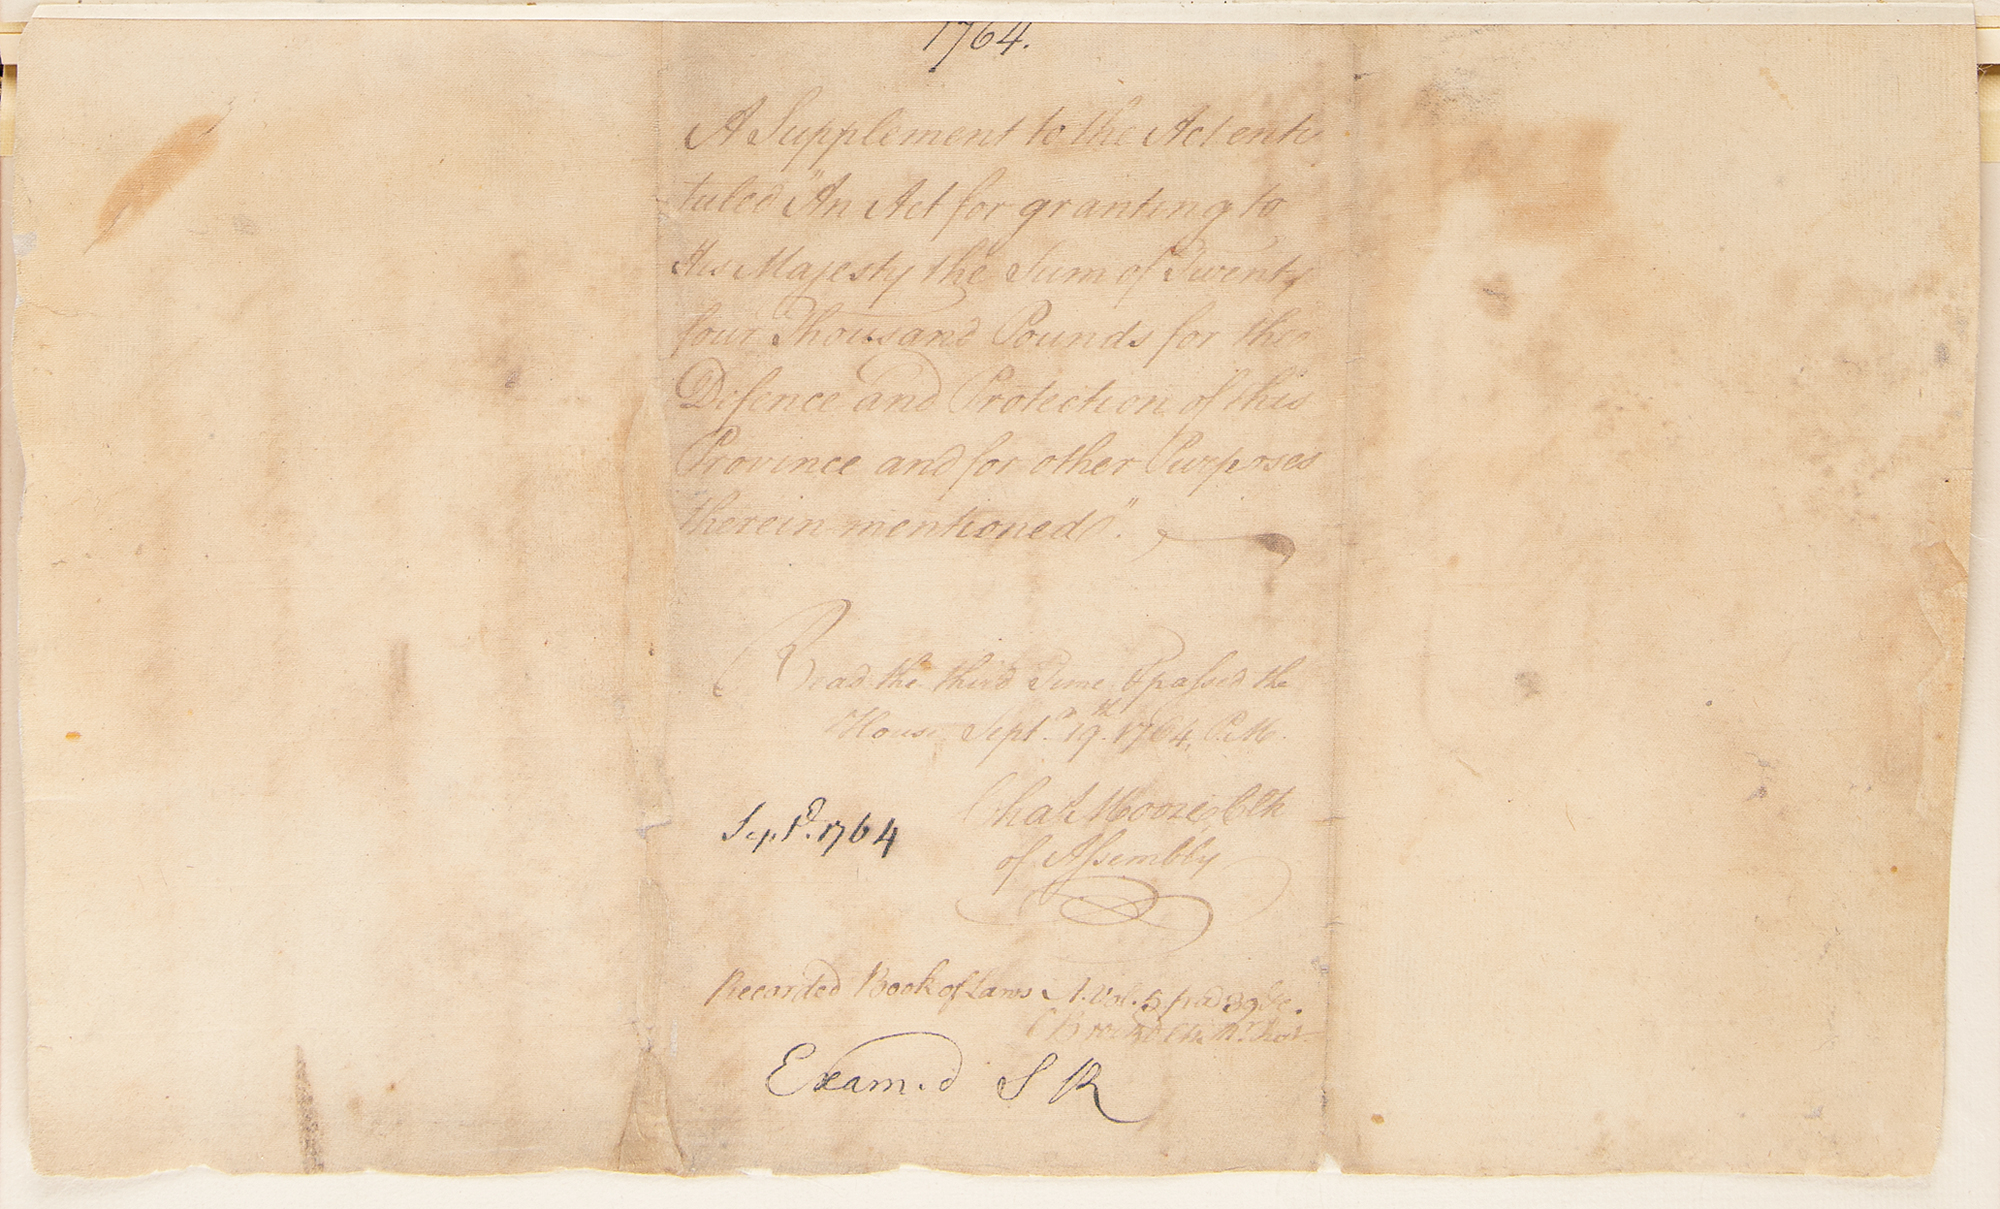 1764.
A Supplement to the Act enti
tuled "An Act for granting to
His Majesty the Sum of Twenty
four Thousand Pounds for the
Defence and Protection of this
Province and for other Purposes
therein mentioned".
Read the third Time & passed the
House Septr. 19th. 1764, P.M.
Chas. Moore, Clk
of Assembly
Sepr. 1764
Recorded Book of Laws A. Vol. 5 pa 39 &c.
Exam.d S R